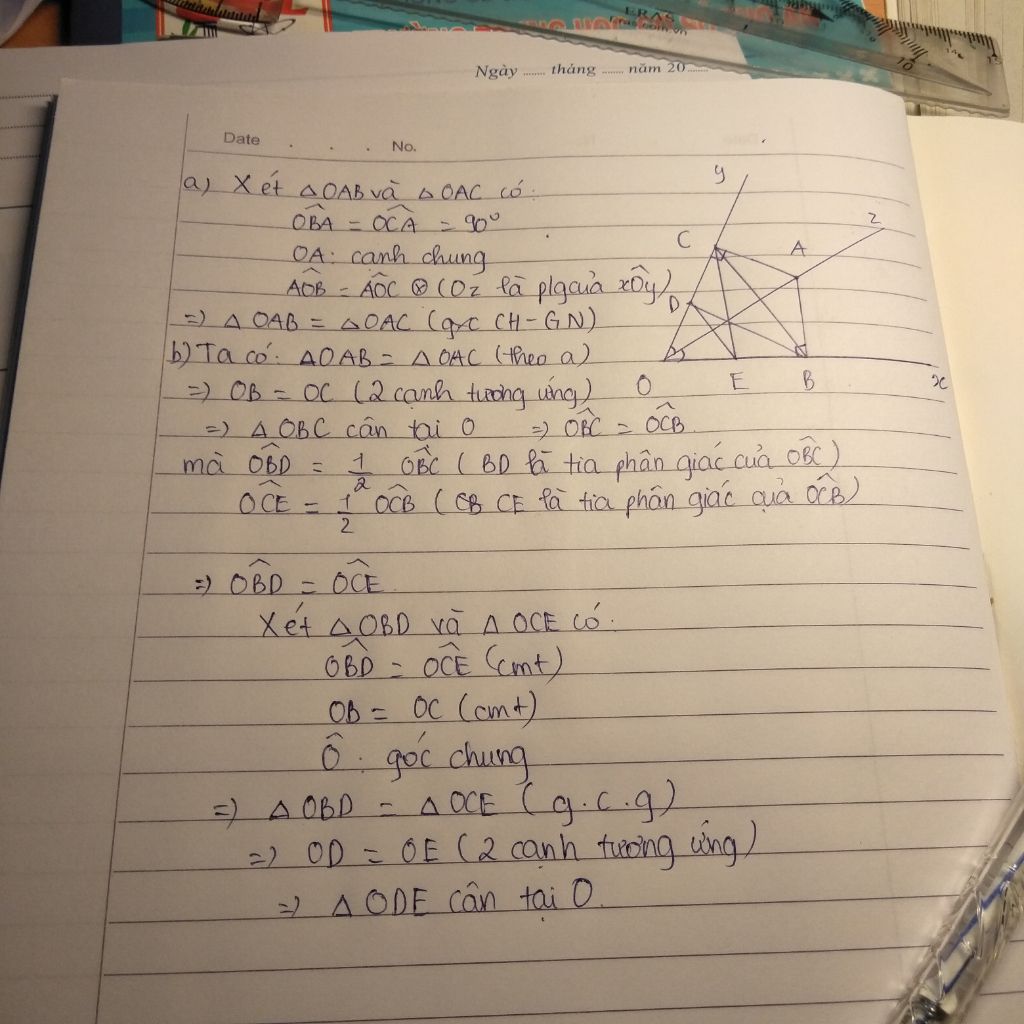 Ngày ...... tháng ...... năm 20......
Date . . . No.
a) Xét △OAB và △OAC có:
OB̂A = OĈA = 90°
OA: cạnh chung
AÔB = AÔC (Oz là plg của xÔy)
=> △OAB = △OAC (gxc CH-GN)
b) Ta có: △OAB = △OAC (theo a)
=> OB = OC (2 cạnh tương ứng)
=> △OBC cân tại O => OB̂C = OĈB
mà OB̂D = 1/2 OB̂C (BD là tia phân giác của OB̂C)
OĈE = 1/2 OĈB (CB CE là tia phân giác của OĈB)
=> OB̂D = OĈE
Xét △OBD và △OCE có:
OB̂D = OĈE (cmt)
OB = OC (cmt)
Ô: góc chung
=> △OBD = △OCE (g.c.g)
=> OD = OE (2 cạnh tương ứng)
=> △ODE cân tại O.
y
z
C
A
D
O
E
B
x